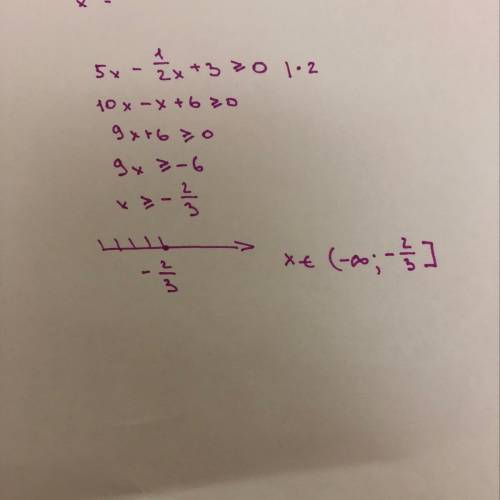 5x - 1/2x + 3 ≥ 0 | · 2
10x - x + 6 ≥ 0
9x + 6 ≥ 0
9x ≥ -6
x ≥ - 2/3
- 2/3
x ∈ (-∞; - 2/3]